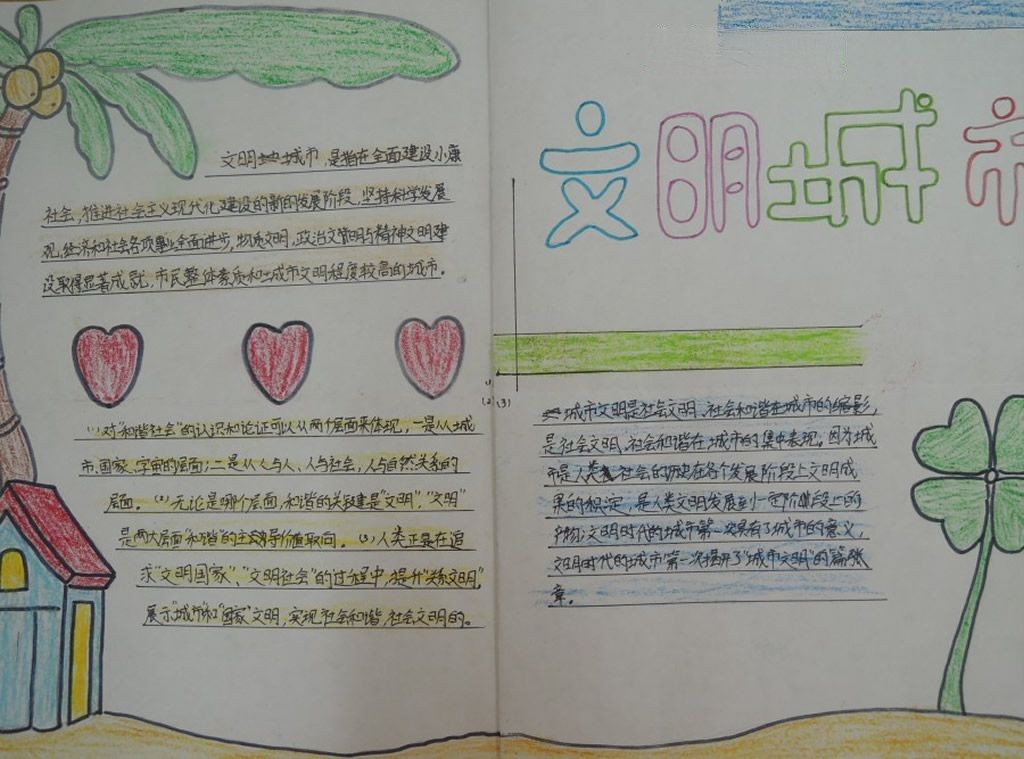 文明城市，是指在全面建设小康
社会，推进社会主义现代化建设的新的发展阶段，坚持科学发展
观，经济和社会各项事业全面进步，物质文明，政治文明与精神文明建
设取得显著成就，市民整体素质和城市文明程度较高的城市。
(1)对"和谐社会"的认识和论证可以从两个层面来体现，一是从城
市、国家、宇宙的层面；二是从人与人、人与社会，人与自然关系的
层面。(2)无论是哪个层面，和谐的关键是"文明"，"文明"
是两大层面"和谐"的主导价值取向。(3)人类正是在追
求"文明国家"，"文明社会"的过程中，提升"关系文明"，
展示"城市"和"国家"文明，实现社会和谐，社会文明的。
文明城市
(1)
(2)(3)
城市文明是社会文明、社会和谐在城市的缩影，
是社会文明、社会和谐在城市的集中表现。因为城
市是人类社会的历史在各个发展阶段上文明成
果的积淀，是人类文明发展到一定阶段上的
产物；文明时代的城市第一次具有了城市的意义，
文明时代的城市第一次揭开了"城市文明"的篇
章。